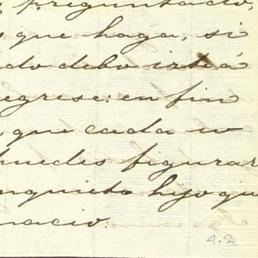 preguntado,
que haga, si
do debo
egrese: en fin
que cada u
puedes figurar
nquieto hijo qu
nacio.
4.2